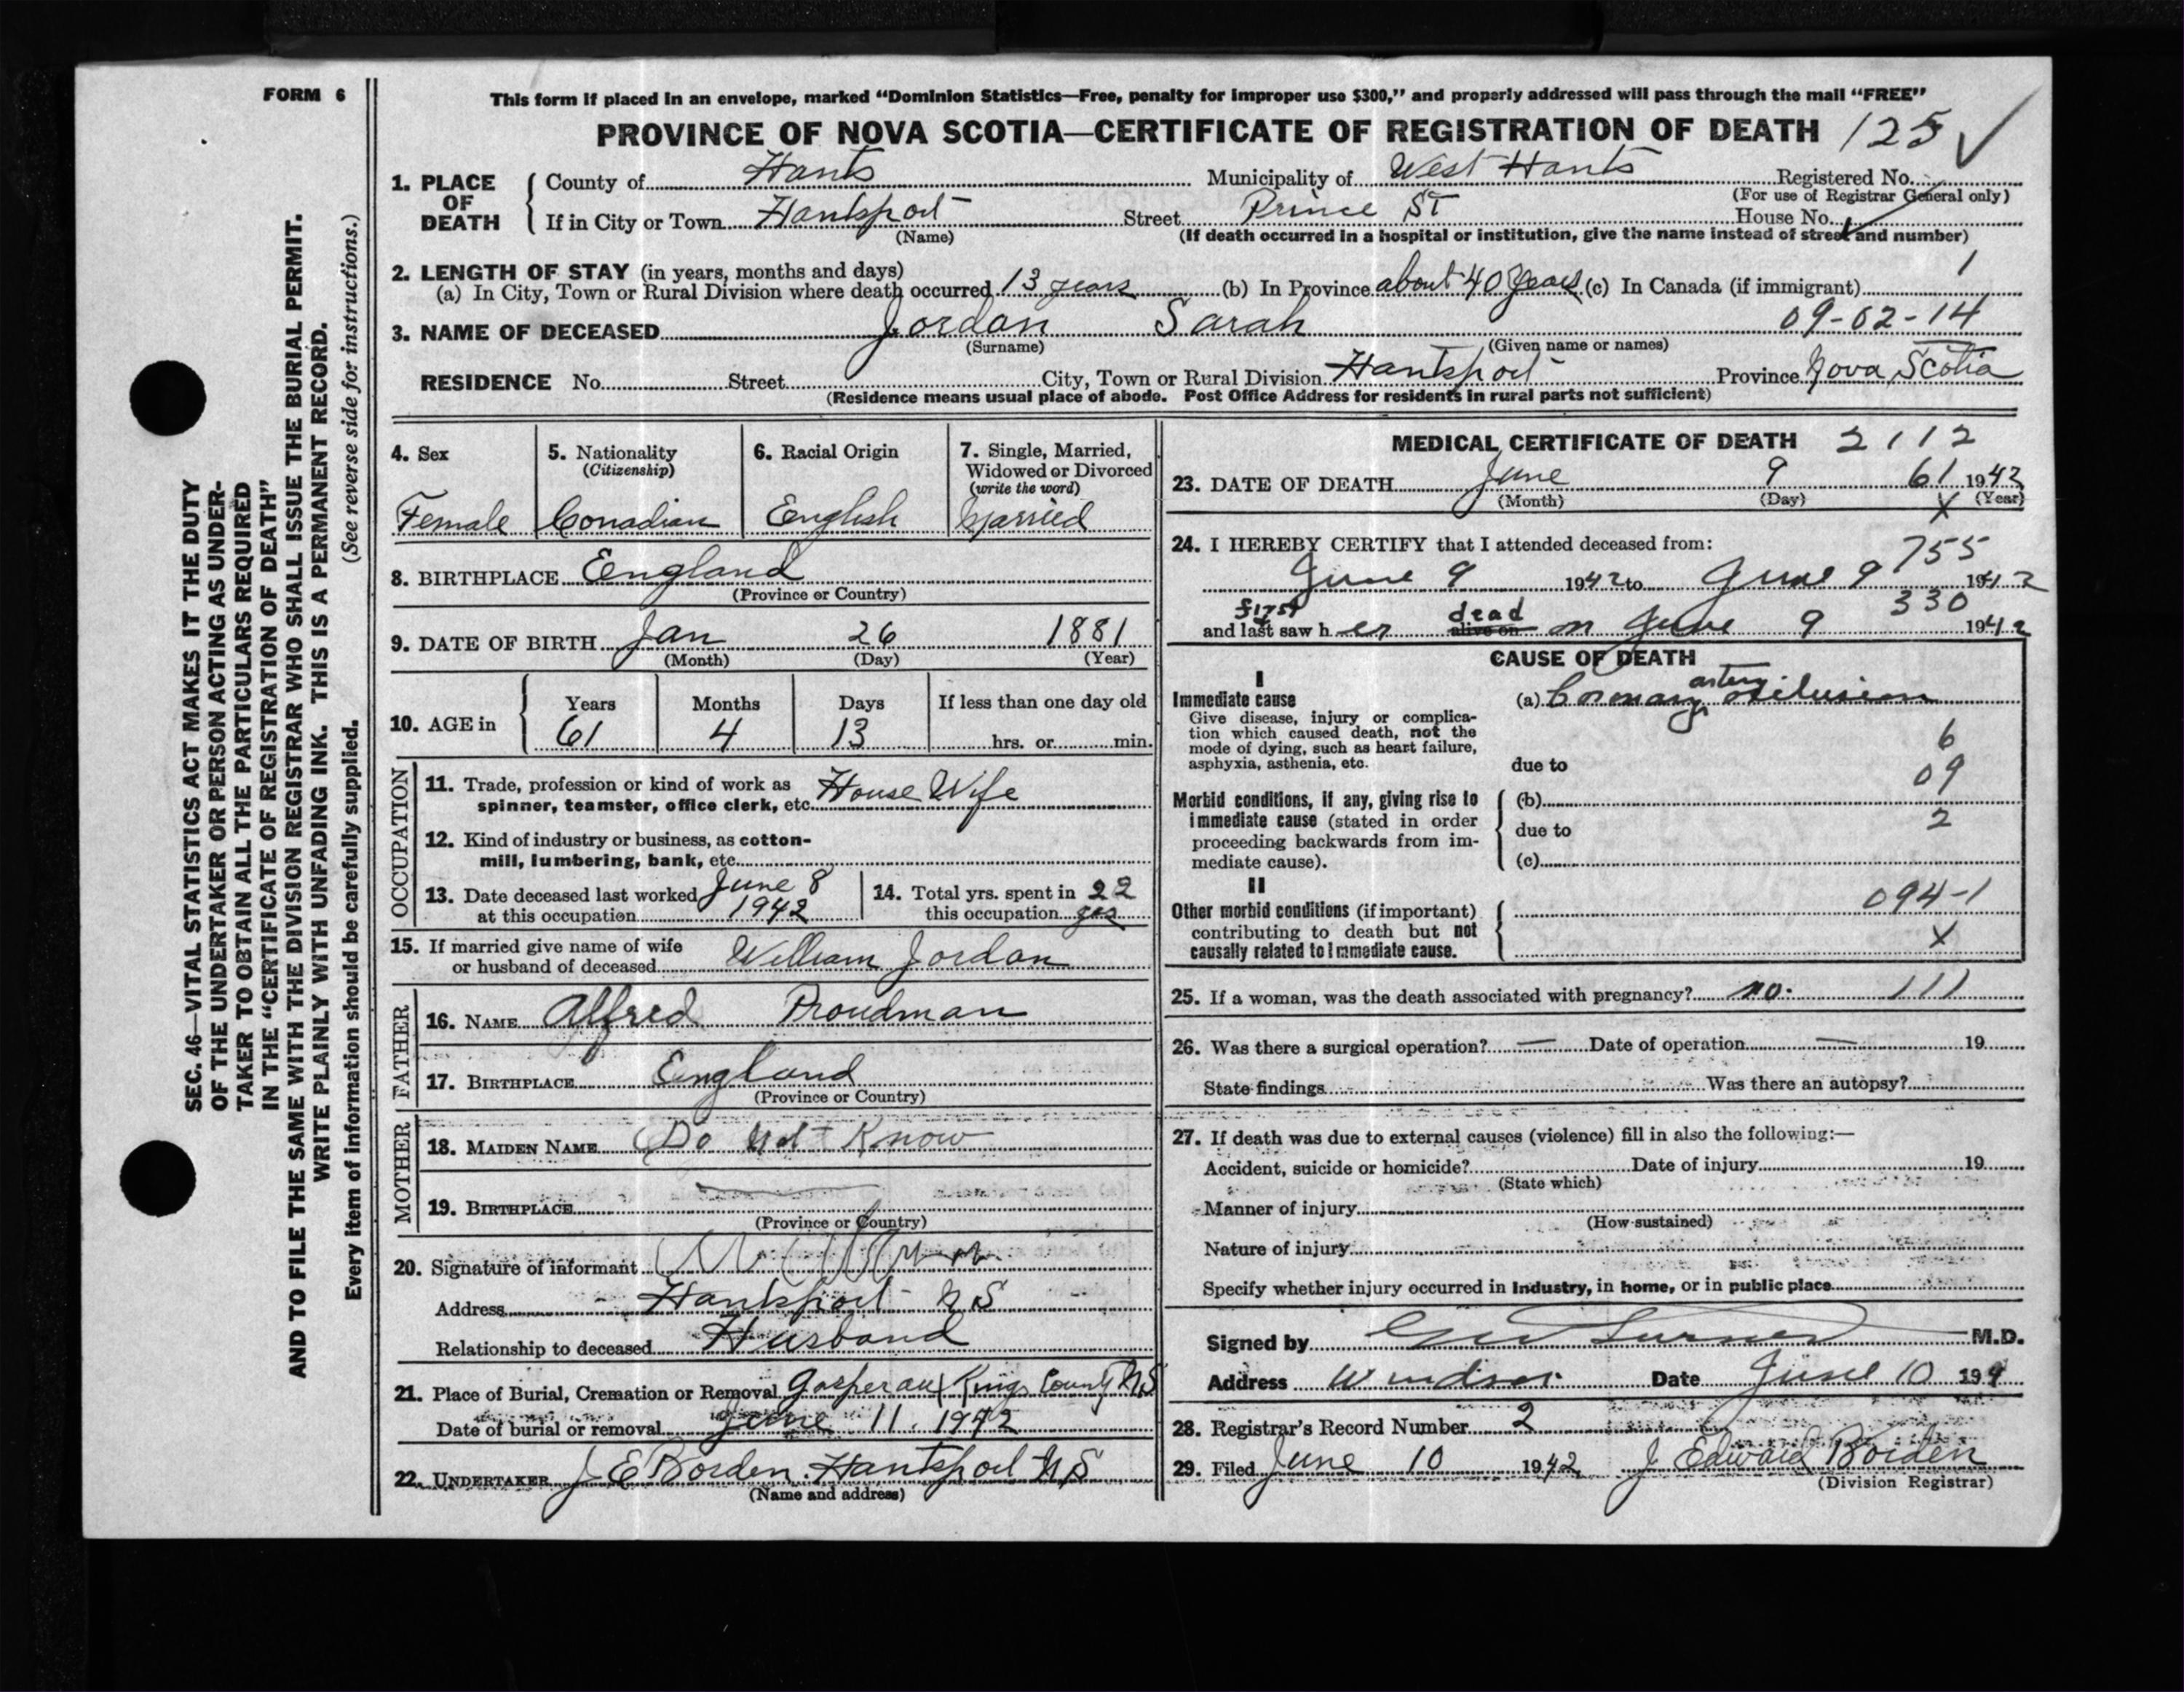 FORM 6
This form if placed in an envelope, marked “Dominion Statistics—Free, penalty for improper use $300,” and properly addressed will pass through the mail “FREE”
PROVINCE OF NOVA SCOTIA—CERTIFICATE OF REGISTRATION OF DEATH 125
SEC. 46—VITAL STATISTICS ACT MAKES IT THE DUTY
OF THE UNDERTAKER OR PERSON ACTING AS UNDER-
TAKER TO OBTAIN ALL THE PARTICULARS REQUIRED
IN THE “CERTIFICATE OF REGISTRATION OF DEATH”
AND TO FILE THE SAME WITH THE DIVISION REGISTRAR WHO SHALL ISSUE THE BURIAL PERMIT.
WRITE PLAINLY WITH UNFADING INK. THIS IS A PERMANENT RECORD.
Every item of information should be carefully supplied. (See reverse side for instructions.)
1. PLACE OF DEATH
County of Hants Municipality of West Hants Registered No.
(For use of Registrar General only)
If in City or Town Hantsport Street Prince St House No.
(Name) (If death occurred in a hospital or institution, give the name instead of street and number)
2. LENGTH OF STAY (in years, months and days) 1
(a) In City, Town or Rural Division where death occurred 13 years (b) In Province about 40 years (c) In Canada (if immigrant)
3. NAME OF DECEASED Jordan Sarah 09-02-14
(Surname) (Given name or names)
RESIDENCE No. Street City, Town or Rural Division Hantsport Province Nova Scotia
(Residence means usual place of abode. Post Office Address for residents in rural parts not sufficient)
4. Sex
Female
5. Nationality
(Citizenship)
Canadian
6. Racial Origin
English
7. Single, Married,
Widowed or Divorced
(write the word)
Married
8. BIRTHPLACE England
(Province or Country)
9. DATE OF BIRTH Jan 26 1881
(Month) (Day) (Year)
10. AGE in
Years Months Days If less than one day old
61 4 13 hrs. or min.
OCCUPATION
11. Trade, profession or kind of work as
spinner, teamster, office clerk, etc. House Wife
12. Kind of industry or business, as cotton-
mill, lumbering, bank, etc.
13. Date deceased last worked June 8
at this occupation 1942
14. Total yrs. spent in 22
this occupation yrs
15. If married give name of wife
or husband of deceased William Jordan
FATHER
16. NAME Alfred Proudman
17. BIRTHPLACE England
(Province or Country)
MOTHER
18. MAIDEN NAME Do not Know
19. BIRTHPLACE
(Province or Country)
20. Signature of informant
Address Hantsport N S
Relationship to deceased Husband
21. Place of Burial, Cremation or Removal Gasperaux Kings County N S
Date of burial or removal June 11. 1942
22. UNDERTAKER J E Borden. Hantsport N S
(Name and address)
MEDICAL CERTIFICATE OF DEATH 2112
23. DATE OF DEATH June 9 61 1942
(Month) (Day) X (Year)
24. I HEREBY CERTIFY that I attended deceased from:
755
June 9 1942 to June 9 1942
first dead 330
and last saw her alive on on June 9 1942
CAUSE OF DEATH
I
Immediate cause
Give disease, injury or complica-
tion which caused death, not the
mode of dying, such as heart failure,
asphyxia, asthenia, etc.
artery
(a) Coronary occlusion
6
due to 09
Morbid conditions, if any, giving rise to
immediate cause (stated in order
proceeding backwards from im-
mediate cause).
(b)
due to 2
(c)
II
Other morbid conditions (if important)
contributing to death but not
causally related to immediate cause.
094-1
X
25. If a woman, was the death associated with pregnancy? no. 111
26. Was there a surgical operation? — Date of operation — 19
State findings Was there an autopsy?
27. If death was due to external causes (violence) fill in also the following:—
Accident, suicide or homicide? Date of injury 19
(State which)
Manner of injury
(How sustained)
Nature of injury
Specify whether injury occurred in industry, in home, or in public place
Signed by M.D.
Address Windsor. Date June 10 194
28. Registrar's Record Number 2
29. Filed June 10 1942 J Edward Borden
(Division Registrar)